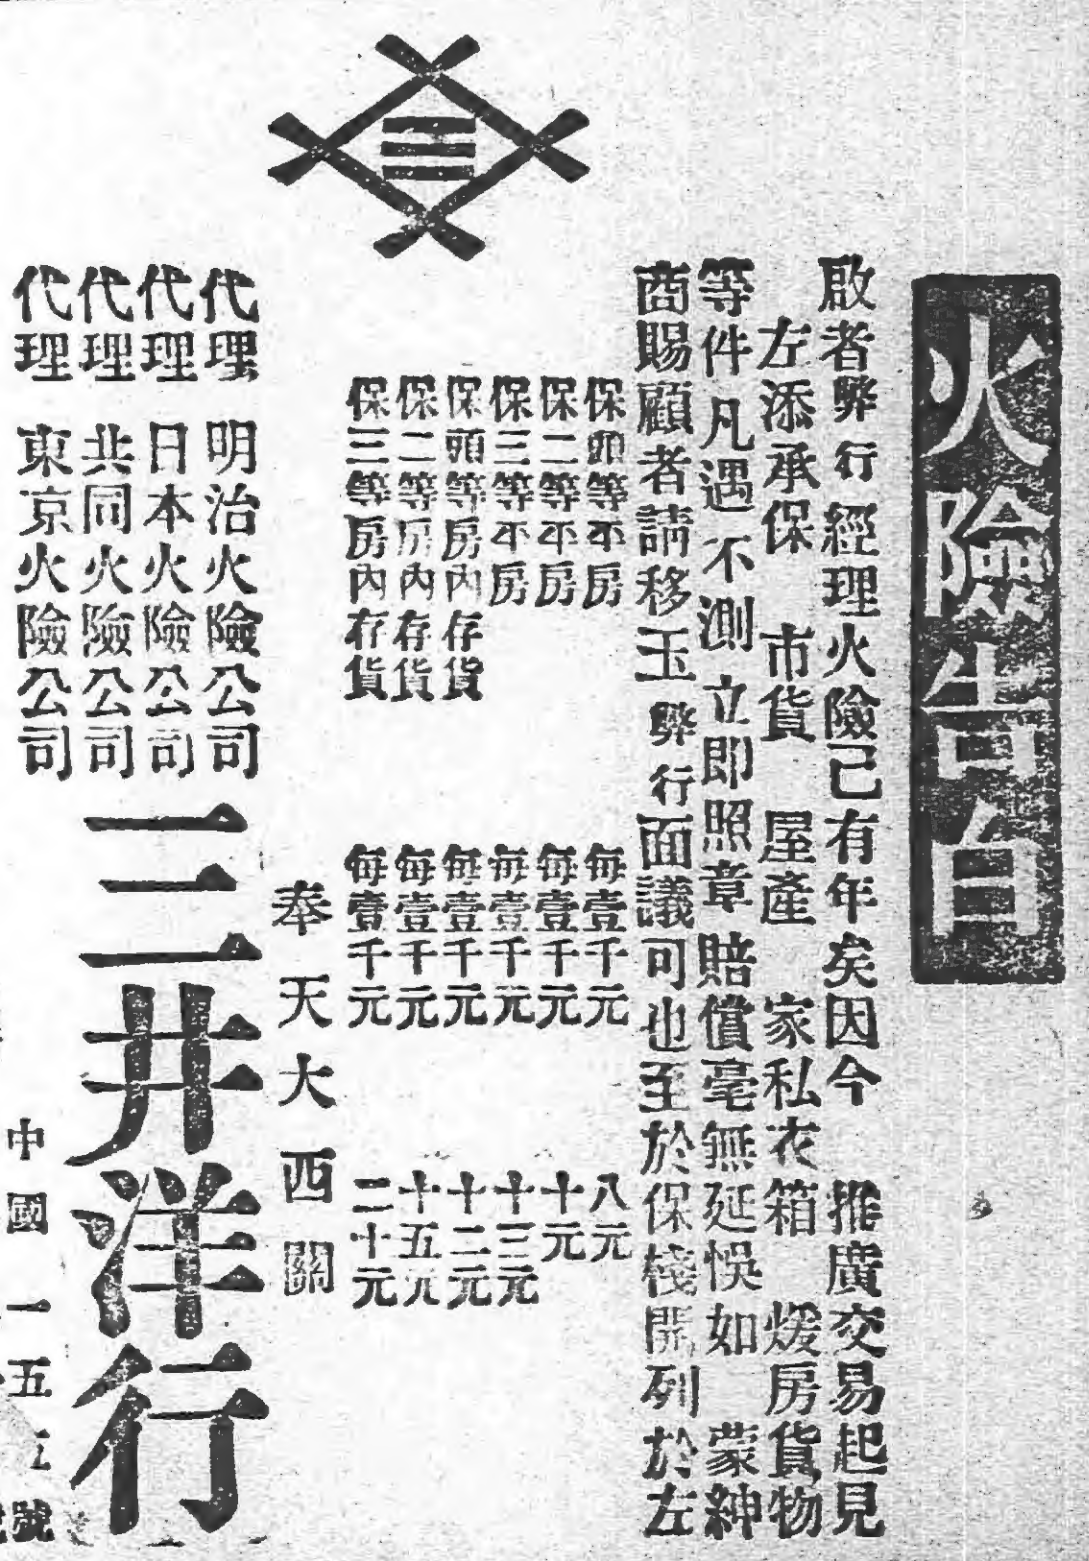 火險告白
啟者弊行經理火險己有年矣因今 推廣交易起見
左添承保 市貨 屋產 家私衣箱 煖房貨物
等件凡遇不測立即照章賠償毫無延悞如 蒙紳
商賜顧者請移玉弊行面議可也至於保棧開列於左
保頭等平房 每壹千元 八元
保二等平房 每壹千元 十元
保三等平房 每壹千元 十三元
保頭等房內存貨 每壹千元 十二元
保二等房內存貨 每壹千元 十五元
保三等房內存貨 每壹千元 二十元
三
奉天大西關
代理 明治火險公司
代理 日本火險公司
代理 共同火險公司
代理 東京火險公司
三井洋行
中國 一五 號